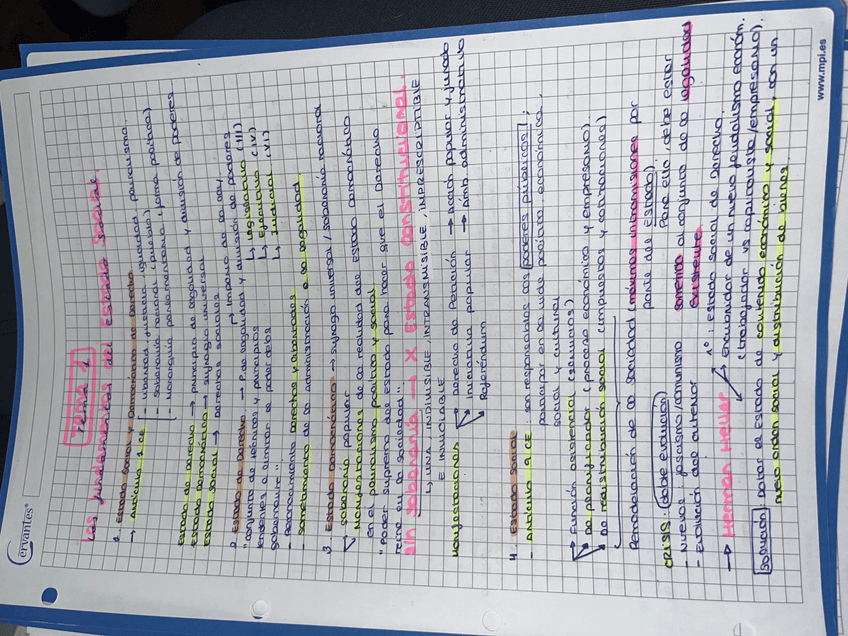 cervantes®
Tema 1
Los fundamentos del estado social.
1. Estado social y democrático de derecho
→ Artículo 1 CE - libertad justicia igualdad pluralismo
- soberanía nacional (pueblo)
- Monarquía parlamentaria (forma política)
Estado de derecho → principio de legalidad y división de poderes
Estado democrático → sufragio universal
Estado social → derechos sociales
→ imperio de la ley
2. Estado de derecho → P. de legalidad y división de poderes
"conjunto de técnicas y principios ↳ Legislativo (III)
tendentes a limitar el poder del ↳ Ejecutivo (IV)
soberano" ↳ Judicial (VI)
- Reconocimiento derechos y libertades
- sometimiento de la administración a la legalidad
3. Estado democrático → sufragio universal / soberanía nacional
↘ soberanía popular
Manifestaciones de la realidad del estado democrático
en el pluralismo político y social
"Poder supremo del estado para hacer que el Derecho
reine en la sociedad"
sin soberanía → X Estado constitucional.
↳ UNA, INDIVISIBLE, INTRANSMISIBLE, IMPRESCRIPTIBLE
E INVIOLABLE
Manifestaciones → Derecho de Petición → Acción popular y jurado
Iniciativa popular → Amb. administrativo
Referéndum
4. Estado social
- Artículo 9 CE: son responsables los poderes públicos;
participar en la vida política, económica,
social y cultural
Función asistencial (seguros)
De planificador (proceso económico y empresario)
De redistribución social (impuestos y cotizaciones)
Remodelación de la sociedad (máximas intromisiones por
parte del Estado)
Para ello debe estar
CRISIS: doble evolución sometido al conjunto de la legalidad
- Nuevos fascismo/comunismo existente
- Evolución del anterior
1º: estado social de Derecho.
→ Herman Heller → Encuentador de un nuevo feudalismo económ.
(trabajador vs capitalista/empresario).
solución Dotar el Estado de contenido económico y social, con un
nuevo orden social y distribución de bienes
www.mpi.es